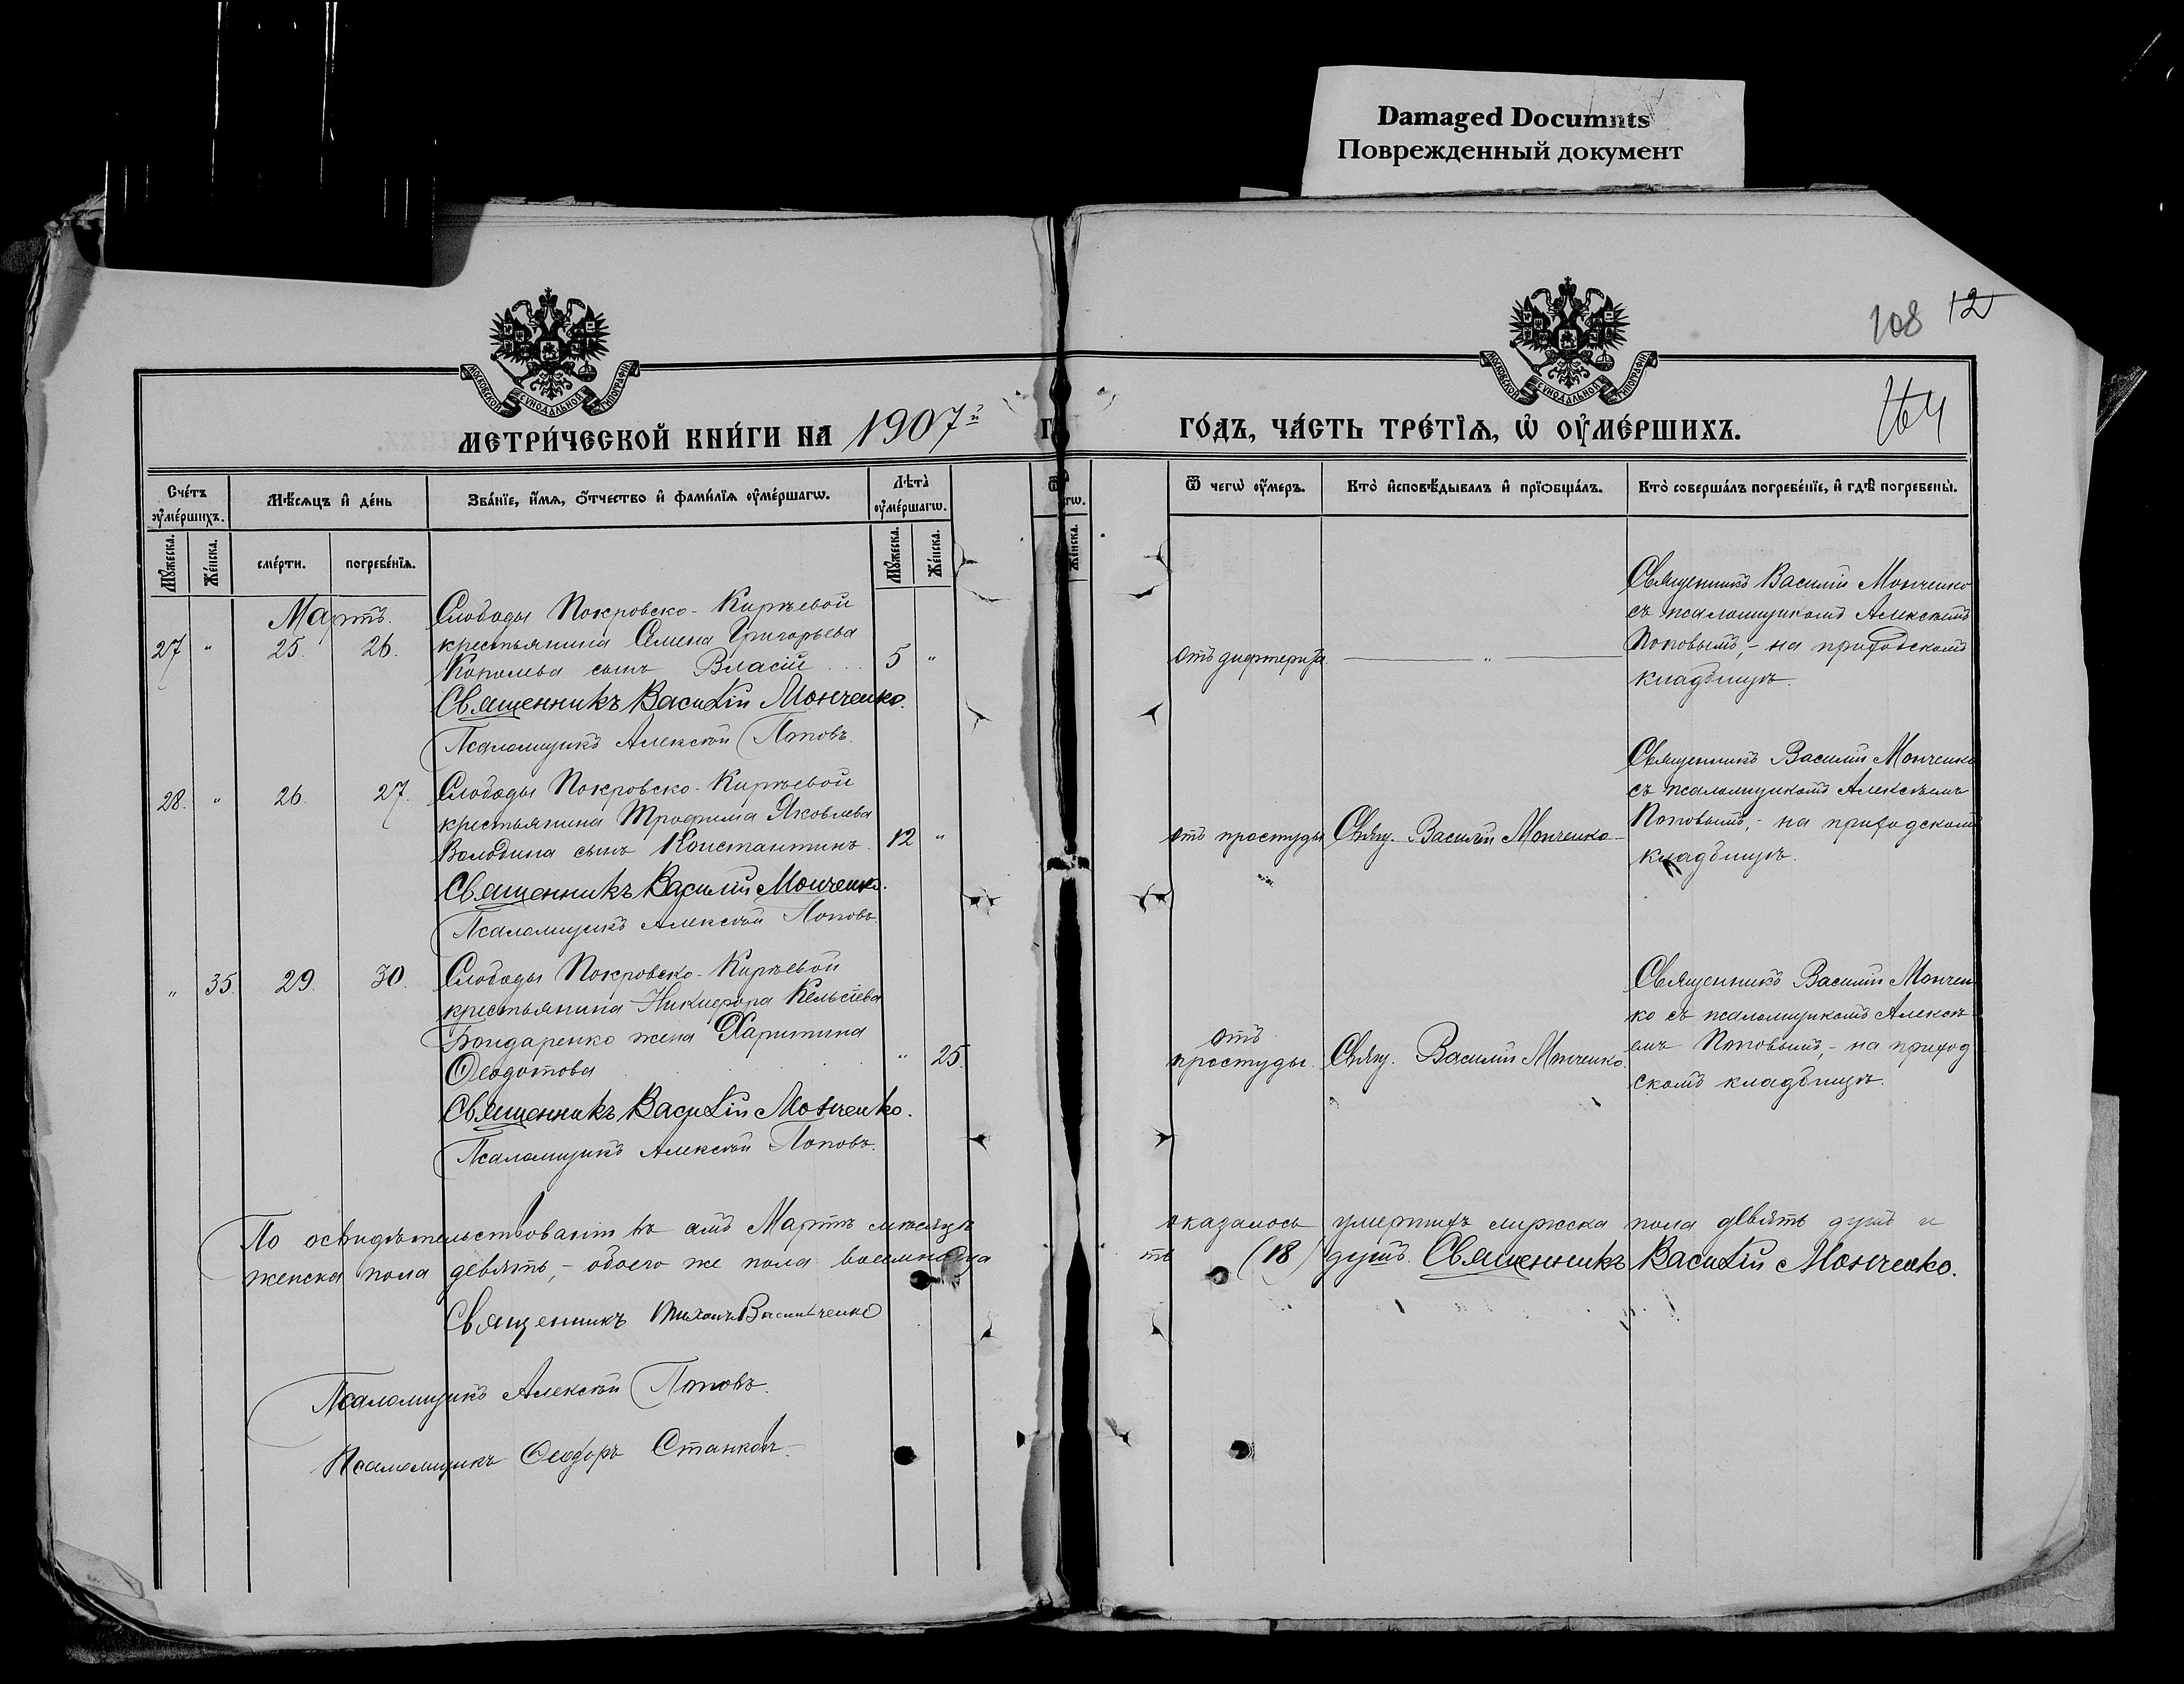 Damaged Documnts
Поврежденный документ
108 12
164
МОСКОВСКОЙ СѴНОДАЛЬНОЙ ТИПОГРАФІИ
МОСКОВСКОЙ СѴНОДАЛЬНОЙ ТИПОГРАФІИ
МЕТРИ́ЧЕСКОЙ КНИ́ГИ НА 1907й
ГО́ДЪ, ЧА́СТЬ ТРЕ́ТЇѦ, Ѡ҆ ОУ҆МЕ́РШИХЪ.
Сче́тъ оу҆ме́ршихъ.
Мѣ́сѧцъ и҆ де́нь
Зва́нїе, и҆́мѧ, ѻ҆́тчество и҆ фами́лїѧ оу҆ме́ршагѡ.
Лѣ́та̀ оу҆ме́ршагѡ.
Ѿ чегѡ̀ оу҆́меръ.
Кто̀ и҆сповѣ́дывалъ и҆ прїѡбща́лъ.
Кто̀ соверша́лъ погребе́нїе, и҆ гдѣ̀ погребены̀.
Мꙋ́жеска.
Же́нска.
сме́рти.
погребе́нїѧ.
Мꙋ́жеска.
Же́нска.
Же́нска.
Мартъ.
27 " 25. 26.
Слободы Покровско-Киръевой
крестьянина Семена Григорьева
Королева сынъ Власій ... 5 "
Священникъ Василій Монченко.
Псаломщикъ Алексѣй Поповъ.
отъ дифтерита — " —
Священникъ Василій Монченко
съ псаломщикомъ Алексѣемъ
Поповымъ, - на приходскомъ
кладбищѣ.
28. " 26. 27.
Слободы Покровско-Киръевой
крестьянина Трофима Яковлева
Володина сынъ Константинъ. 12 "
Священникъ Василій Монченко.
Псаломщикъ Алексѣй Поповъ
отъ простуды Свящ. Василій Монченко
Священникъ Василій Монченко
съ псаломщикомъ Алексѣемъ
Поповымъ, - на приходскомъ
кладбищѣ.
" 35. 29. 30.
Слободы Покровско-Киръевой
крестьянина Никифора Кельсіева
Бондаренко жена Харитина
Ѳеодотова " 25.
Священникъ Василій Монченко.
Псаломщикъ Алексѣй Поповъ.
отъ
простуды. Свящ. Василій Монченко.
Священникъ Василій Мончен
ко съ псаломщикомъ Алексѣ
емъ Поповымъ, - на приход
скомъ кладбищѣ.
По освидѣтельствованіи въ Мартѣ мѣсяцѣ оказалось умершихъ мужска пола девять душъ и
женска пола девять, - обоего же пола (18) душъ. Священникъ Василій Монченко.
Священникъ Тихонъ Васильченко
Псаломщикъ Алексѣй Поповъ.
Псаломщикъ Ѳеодоръ